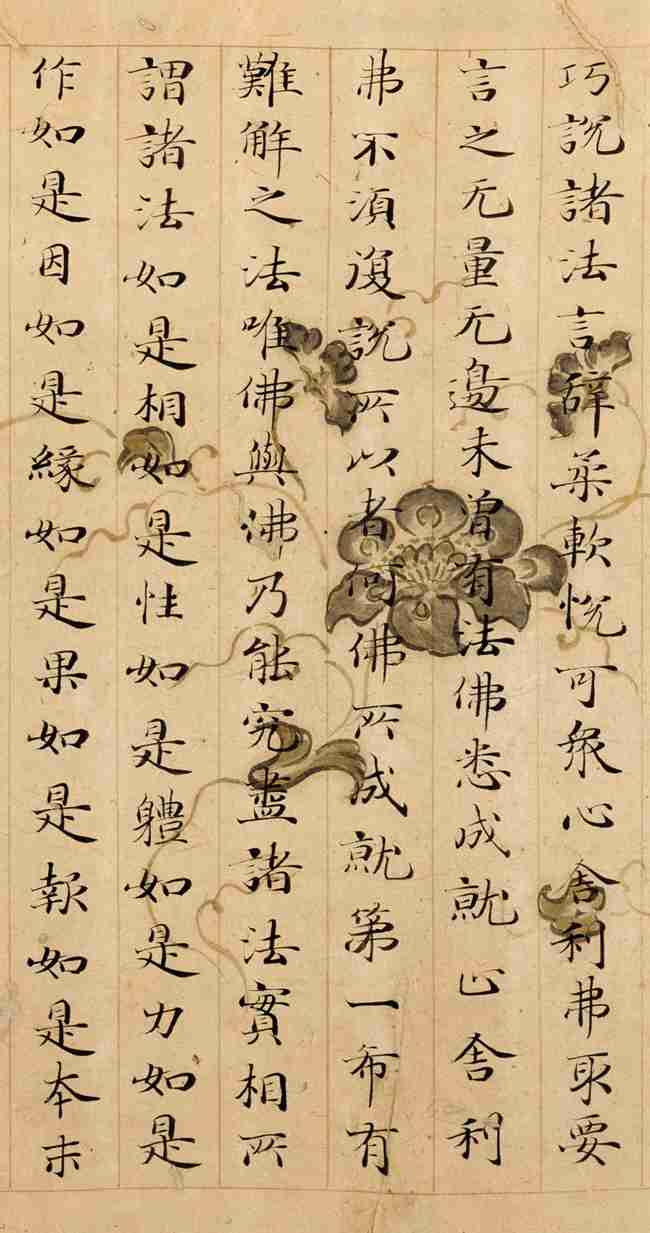 巧說諸法言辭柔軟悅可衆心舍利弗取要
言之无量无邊未曾有法佛悉成就止舍利
弗不湏復說所以者何佛所成就第一希有
難解之法唯佛與佛乃能究盡諸法實相所
謂諸法如是相如是性如是體如是力如是
作如是因如是緣如是果如是報如是本末